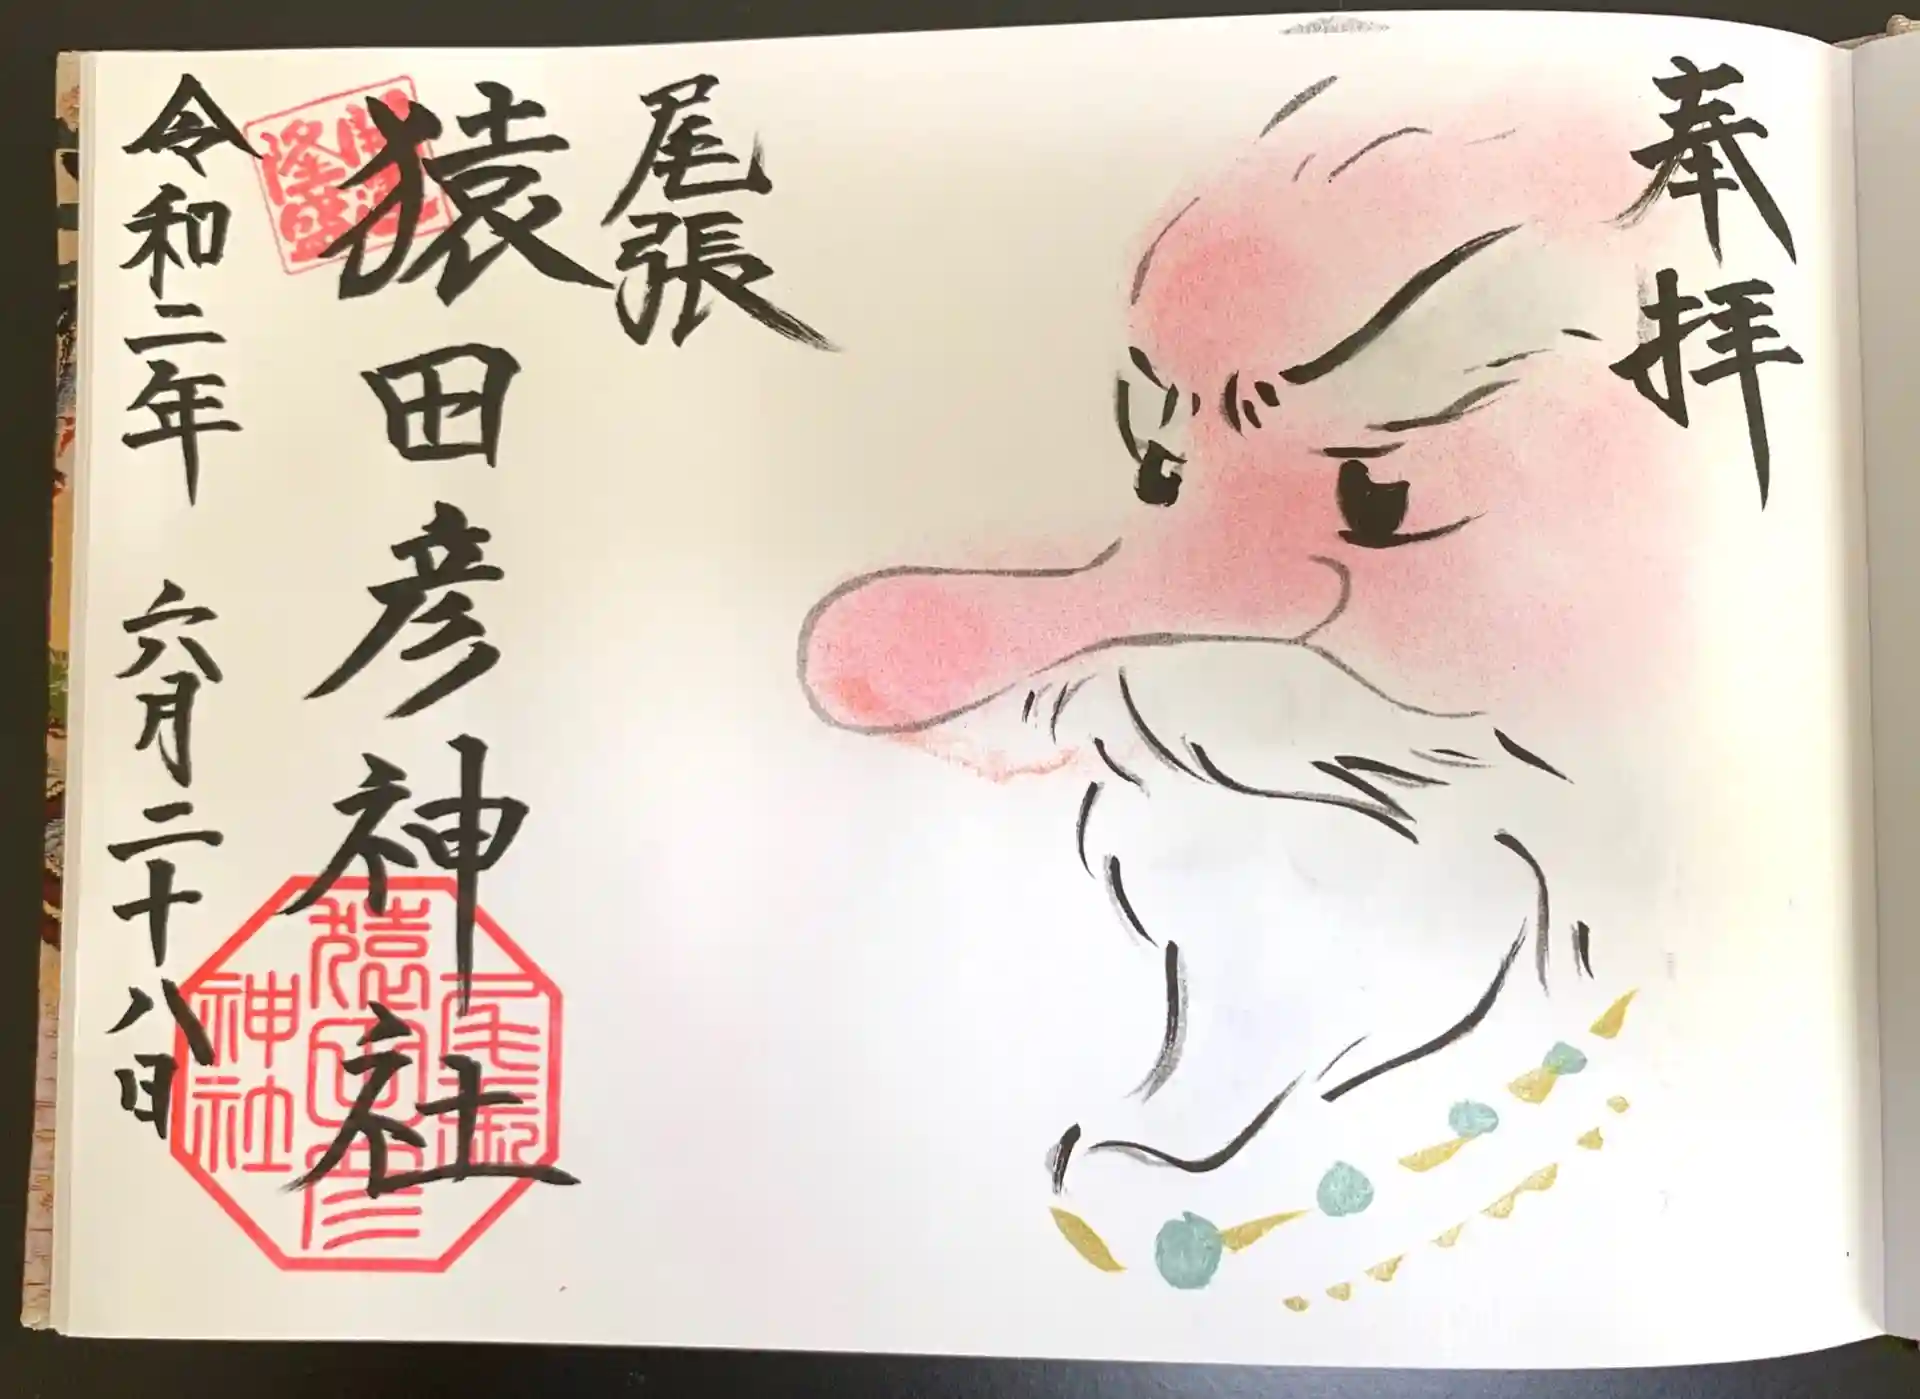 奉拝
尾張
猿田彦神社
令和二年 六月二十八日
尾張
猿田彦
神社
隆盛